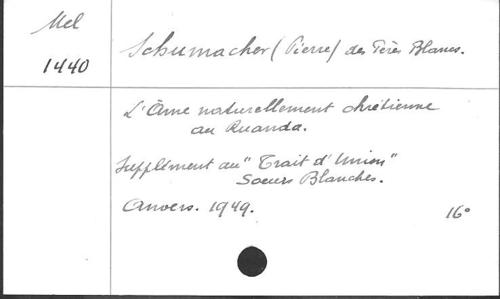 Mel
1440
Schumacher (Pierre) des Pères Blancs.
L'Âme naturellement chrétienne
au Ruanda.
Supplément au "Trait d'Union"
Soeurs Blanches.
Anvers. 1949.
16°